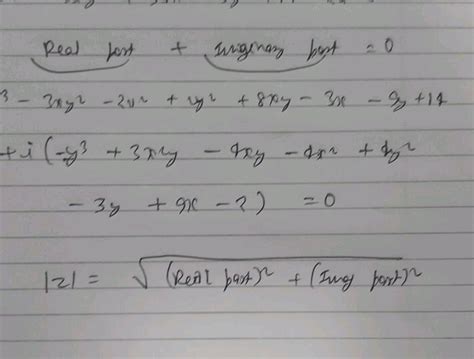 Real part + Imaginary part = 0
3 - 3xy² - 2x² + 2y² + 8xy - 3x - 9y + 14
+i (-y³ + 3x²y - 4xy - 4x² + 4y²
- 3y + 9x - 2) = 0
|z| = √(Real part)² + (Imag part)²